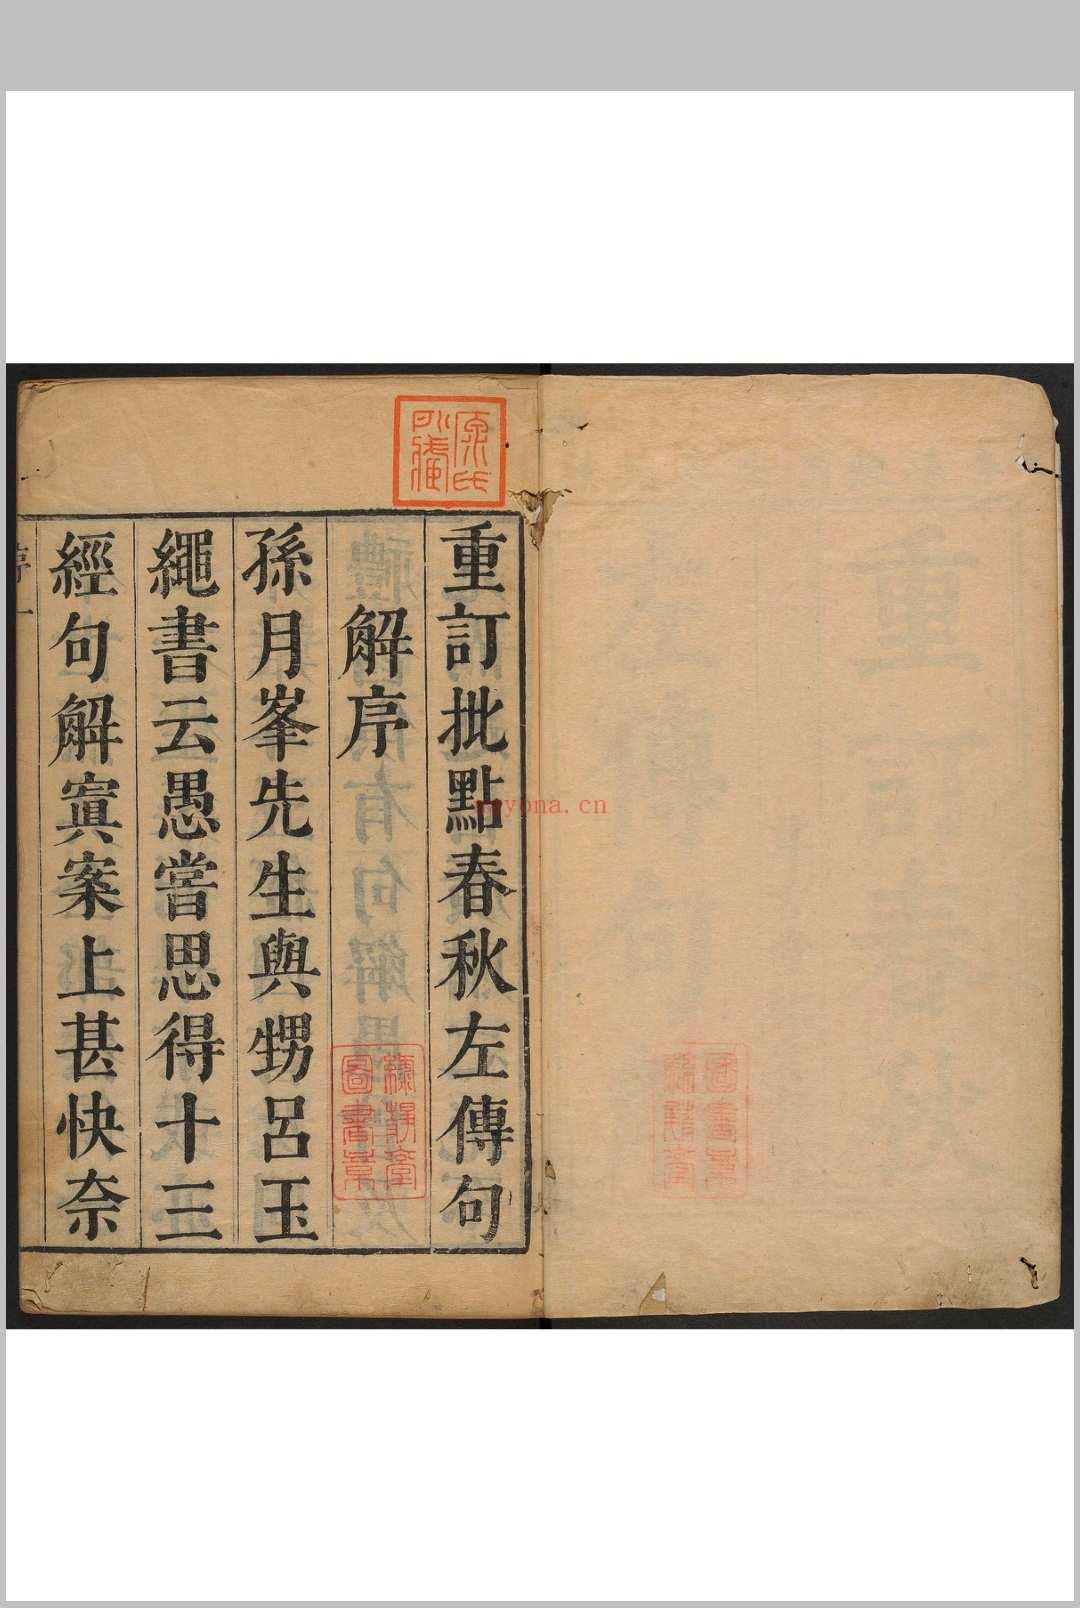 重訂批點春秋左傳句
解序
孫月峯先生與甥呂玉
繩書云愚嘗思得十三
經句解寘案上甚快奈
序 一
圖書章
nayona.cn